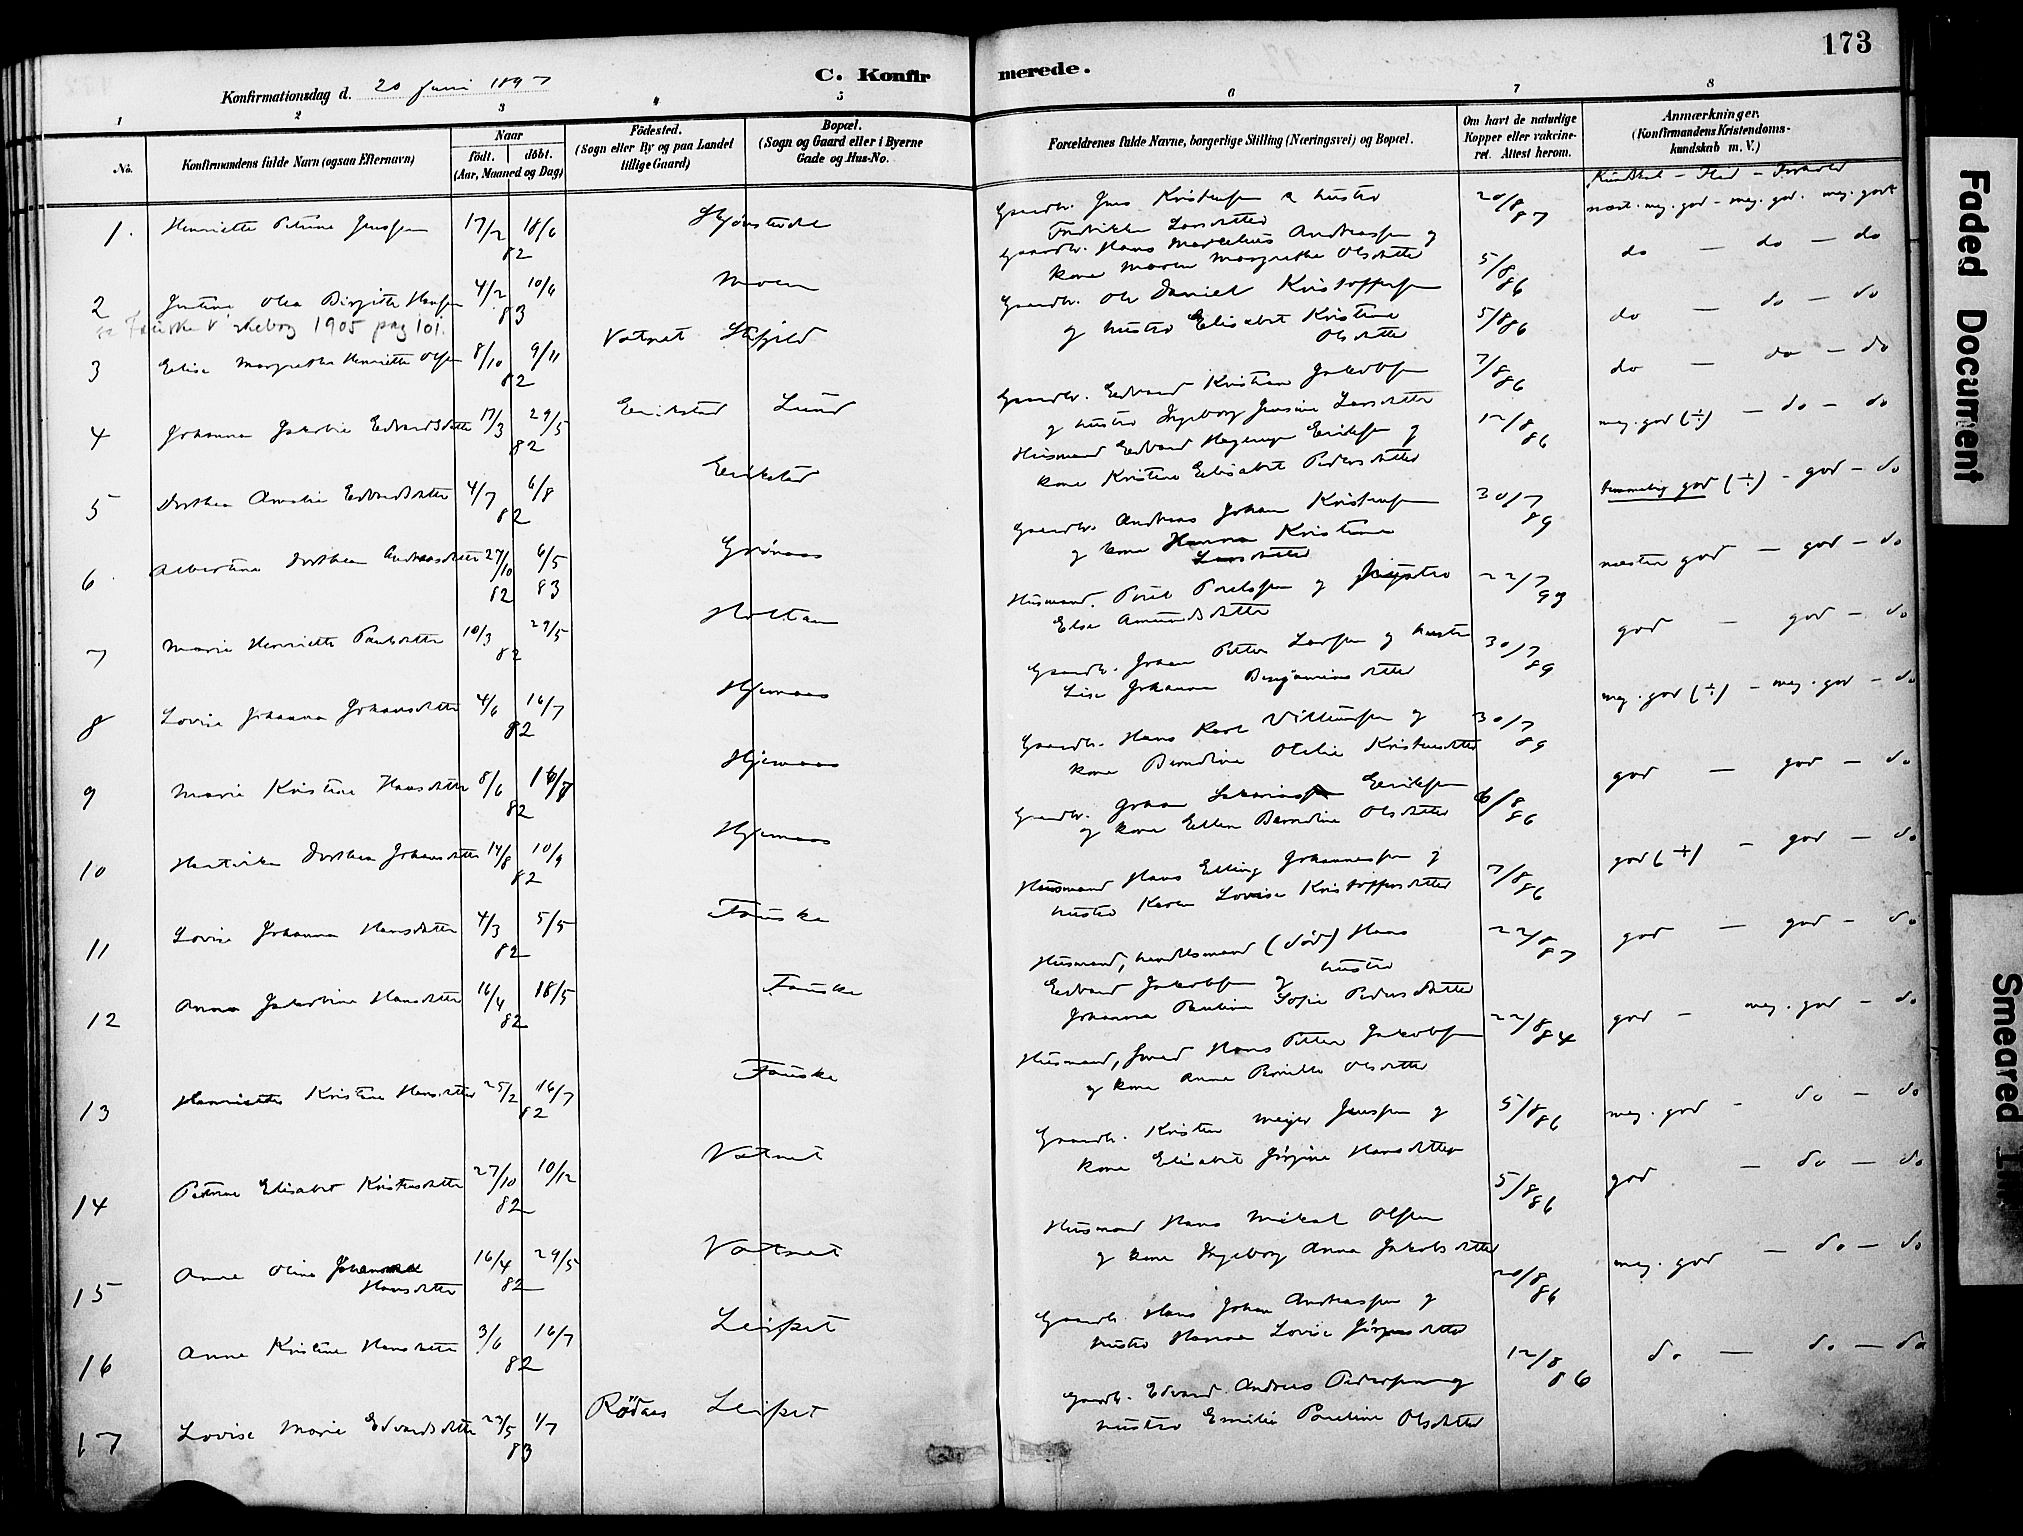 173
C. Konfirmerede.
Konfirmationsdag d. 20 Juni 1897
1 2 3 4 5 6 7 8
No. Konfirmandens fulde Navn (ogsaa Efternavn) Naar födt. döbt. (Aar, Maaned og Dag) Födested. (Sogn eller By og paa Landet tillige Gaard) Bopæl. (Sogn og Gaard eller i Byerne Gade og Hus-No. Forældrenes fulde Navne, borgerlige Stilling (Næringsvei) og Bopæl. Om havt de naturlige Kopper eller vakcineret. Attest herom. Anmærkninger. (Konfirmandens Kristendomskundskab m. V.)
Kundskab - Flid - Forhold
1. Henriette Petrine Jenssen 17/2 18/6 82 Gaardbr. Jens Kristensen & hustru Fredrikke Larsdatter 20/8 87 næst. meg. god - meg. god. meg. godt
2 Justine Olea Birgitte Hansen 4/2 10/6 83 Moen Gaardbr. Hans Marcelius Andreassen og kone Maren Margrethe Olsdatter 5/8 86 do - do - do
Fauske 1905 pag 101.
3 Elise Margrethe Henriette Olsen 8/10 9/11 82 Vatnet Gaardbr. Ole Daniel Kristoffersen og hustru Elisabet Kristine Olsdatter 5/8 86 do - do - do
4 Johanna Jakobie Edvardsdatter 17/3 29/5 82 Erikstad Lund Gaardbr. Edvard Kristian Jakobsen og hustru Ingeborg Jensine Larsdatter 7/8 86 do - do - do
5 Dorthea Amalie Edvardsdatter 4/7 6/8 82 Erikstad Husmand Edvard Eriksen og kone Kristine Elisabet Pedersdatter 12/8 86 meg. god (÷) - do - do
6. Albertine Dorthea Andreasdatter 27/10 82 6/5 83 Grønaas Gaardbr. Andreas Johan Kristensen og kone Hanna Kristine Larsdatter 30/7 89 temmelig god (÷) - god - do
7 Marie Henriette Paulsdatter 10/3 29/5 82 Holtan Husmand. Poul Poulsen og hustru Else Amundsdatter 22/7 93 næsten god - god - do
8 Lovise Johanna Johansdatter 4/6 16/7 82 Hjemaas Gaardbr. Johan Petter Larsen og hustru Lise Johanna Benjaminsdatter 30/7 89 god - god - do
9 Marie Kristine Hansdatter 8/6 16/7 82 Hjemaas Gaardbr. Hans Karl Villumsen og kone Berndine Otelie Kristensdatter 30/7 89 meg. god (÷) - meg. god - do
10 Hartvikka Dorthea Johansdatter 14/8 10/9 82 Hjemaas Gaardbr. Johan Eriksen og kone Ellen Berndine Olsdatter 6/8 86 god - god - do
11 Lovise Johanna Hansdatter 4/3 5/5 82 Fauske Husmand Hans Elling Johannessen og hustru Karen Lovise Kristoffersdatter 7/8 86 god (÷) - god - do
12 Anna Jakobine Hansdatter 16/4 18/5 82 Fauske Husmand, handelsmand (død) Hans Edvard Jakobsen og hustru Johanna Pauline Sofie Pedersdatter 22/8 87 god - god - do
13 Henriette Kristine Hansdatter 25/2 16/7 82 Fauske Husmand, Smed Hans Petter Jakobsen og kone Anna Pernille Olsdatter 22/8 84 god - meg. god - do
14 Petrine Elisabet Kristensdatter 27/10 10/12 82 Vatnet Gaardbr. Kristen Meyer Jenssen og kone Elisabet Jørgine Hansdatter 5/8 86 meg. god - do - do
15 Anna Oline Hansdatter 16/4 29/5 82 Vatnet Husmand Hans Mikal Olsen og kone Ingeborg Anna Jakobsdatter 5/8 86 god - do - do
16 Anne Kristine Hansdatter 3/6 16/7 82 Leifset Gaardb. Hans Johan Andreassen og hustru Hanna Lovise Jørgensdatter 20/8 86 meg. god - do - do
17 Lovise Marie Edvardsdatter 23/5 1/7 83 Rödaas Leifset Gaardb. Edvard Andreas Pedersen og hustru Emilie Pauline Olsdatter 12/8 86 do - do - do
Faded Document
Smeared